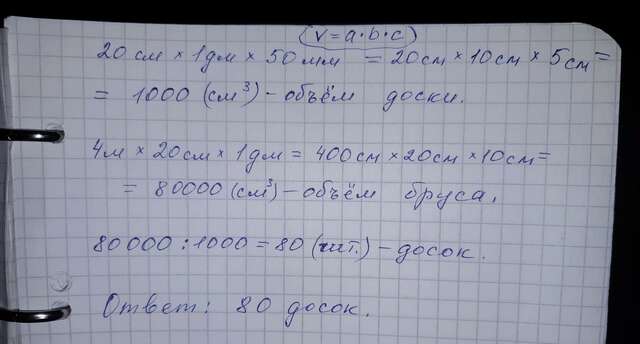 (V=a·b·c)
20 см × 1дм × 50 мм = 20см × 10см × 5см =
= 1000 (см³) - объём доски.
4м × 20см × 1дм = 400см × 20см × 10см =
= 80000 (см³) - объём бруса.
80000 : 1000 = 80 (шт.) - досок.
Ответ: 80 досок.